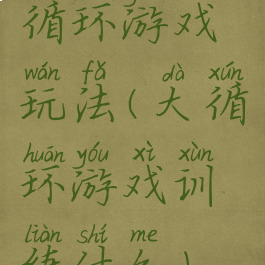 循环游戏
wán fǎ dà xún
玩法(大循
huán yóu xì xùn
环游戏训
liàn shí me